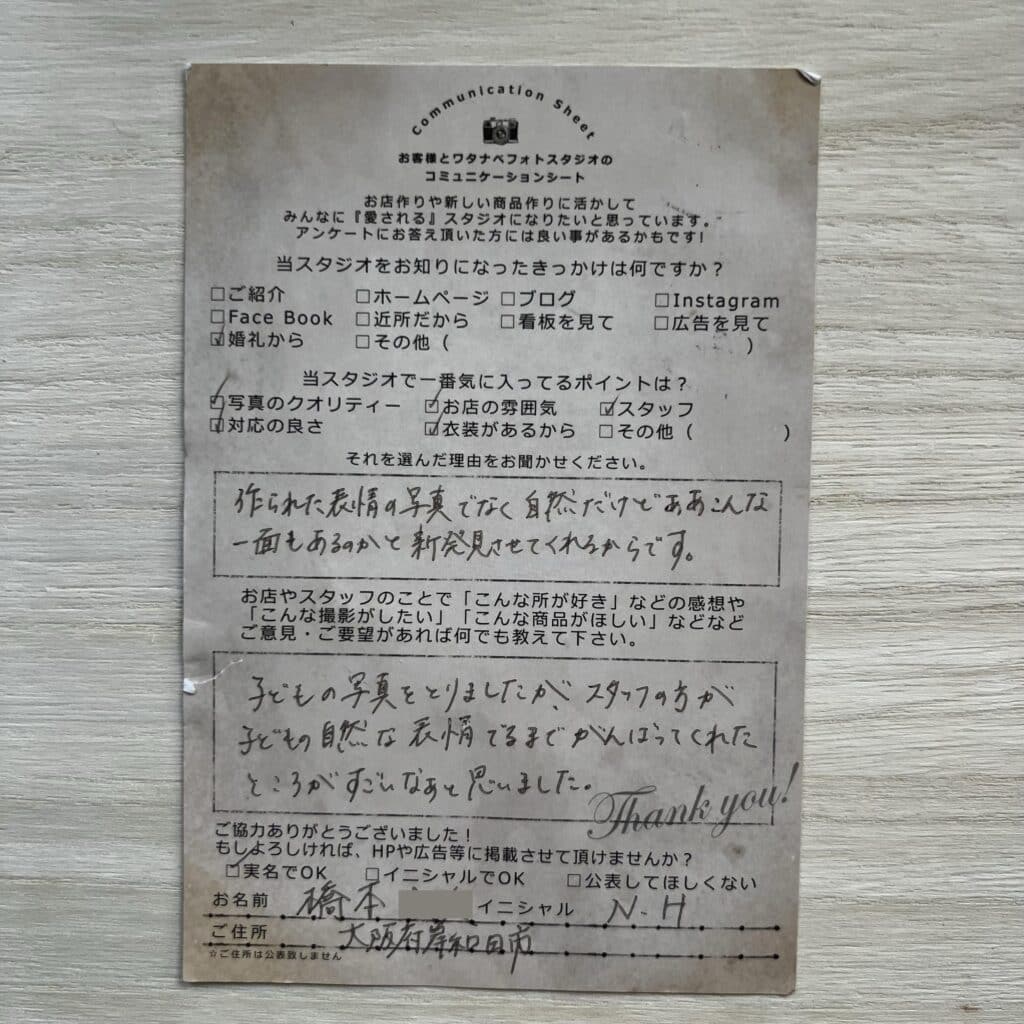 Communication Sheet
お客様とワタナベフォトスタジオの
コミュニケーションシート
お店作りや新しい商品作りに活かして
みんなに『愛される』スタジオになりたいと思っています。
アンケートにお答え頂いた方には良い事があるかもです!
当スタジオをお知りになったきっかけは何ですか？
□ご紹介 □ホームページ □ブログ □Instagram
□Face Book □近所だから □看板を見て □広告を見て
☑婚礼から □その他（ ）
当スタジオで一番気に入ってるポイントは？
☑写真のクオリティー ☑お店の雰囲気 ☑スタッフ
☑対応の良さ ☑衣装があるから □その他（ ）
それを選んだ理由をお聞かせください。
作られた表情の写真でなく自然だけどああこんな
一面もあるのかと新発見させてくれるからです。
お店やスタッフのことで「こんな所が好き」などの感想や
「こんな撮影がしたい」「こんな商品がほしい」などなど
ご意見・ご要望があれば何でも教えて下さい。
子どもの写真をとりましたが、スタッフの方が
子どもの自然な表情でるまでがんばってくれた
ところがすごいなあと思いました。
Thank you!
ご協力ありがとうございました！
もしよろしければ、HPや広告等に掲載させて頂けませんか？
☑実名でOK □イニシャルでOK □公表してほしくない
お名前 橋本 イニシャル N.H
ご住所 大阪府岸和田市
☆ご住所は公表致しません